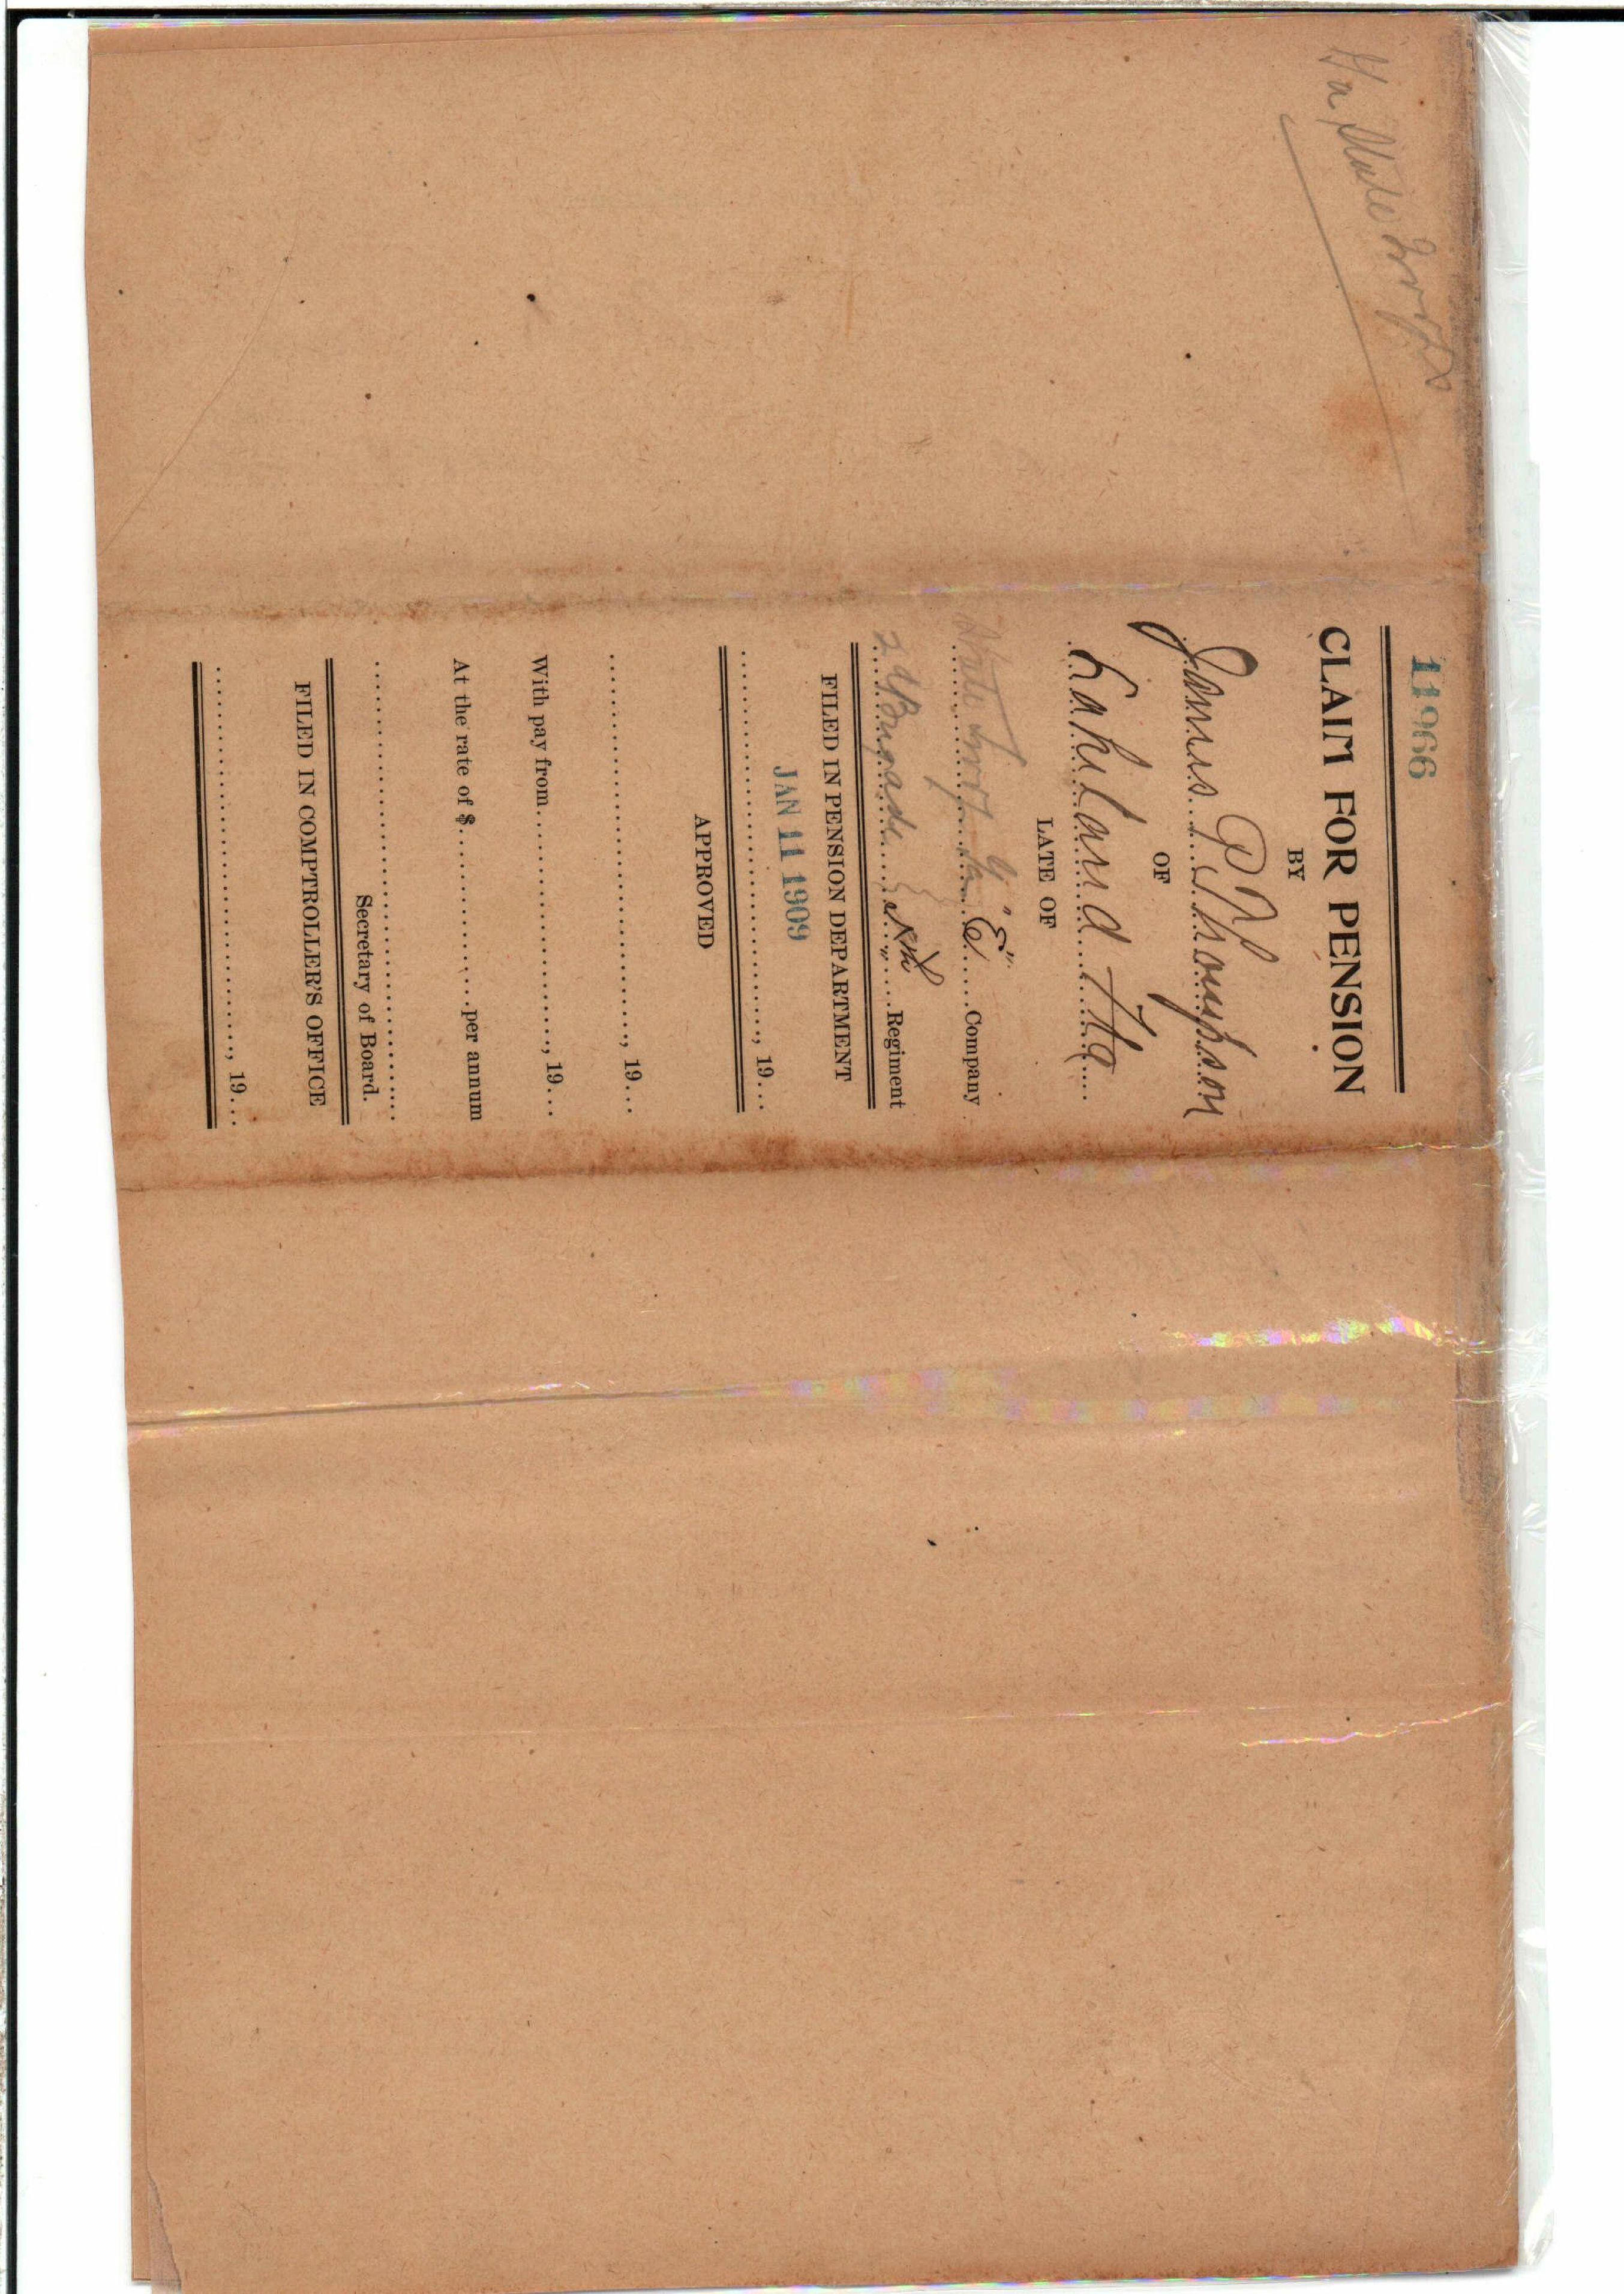 Ga, State Troops
11966
CLAIM FOR PENSION
BY
James P. Thompson
OF
Lakeland Fla
LATE OF
State Troops Ga "E" Company
2d Brigade Regiment
FILED IN PENSION DEPARTMENT
JAN 11 1909
, 19
APPROVED
, 19
With pay from , 19
At the rate of $ per annum
Secretary of Board.
FILED IN COMPTROLLER'S OFFICE
, 19